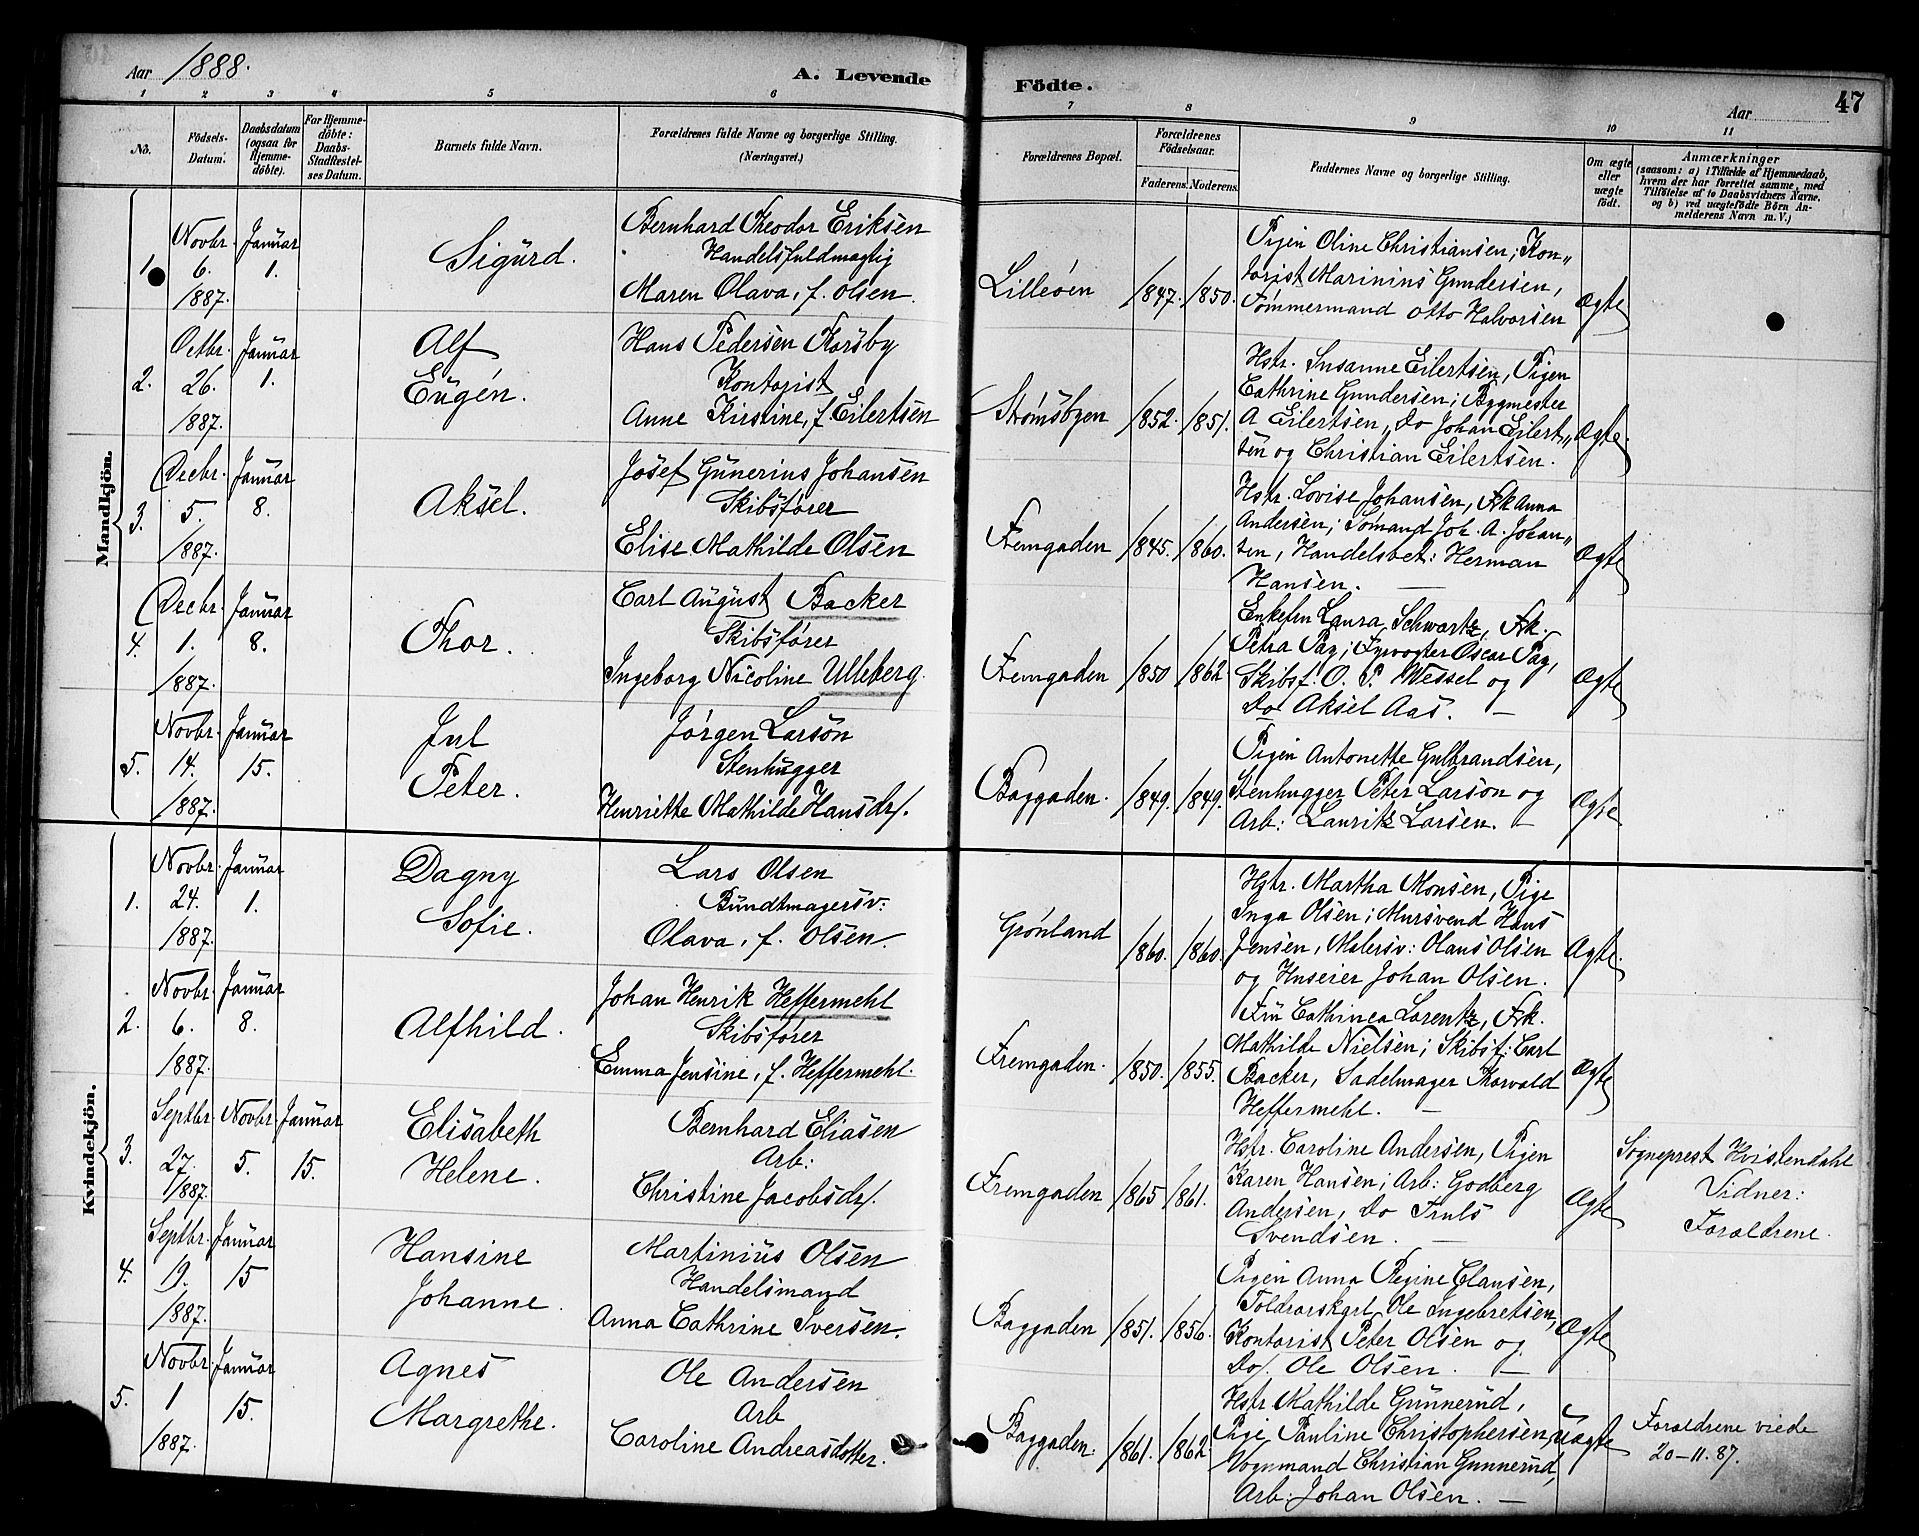 Aar 1888.
A. Levende Födte.
Aar
47
1 2 3 4 5 6 7 8 9 10 11
No.
Födsels-Datum.
Daabsdatum (ogsaa for Hjemmedöbte).
For Hjemmedöbte: Daabs-Stadfestelses Datum.
Barnets fulde Navn.
Forældrenes fulde Navne og borgerlige Stilling. (Næringsvei.)
Forældrenes Bopæl.
Forældrenes Födselsaar.
Faderens. Moderens.
Faddernes Navne og borgerlige Stilling.
Om ægte eller uægte født.
Anmærkninger
(saasom: a) i Tilfælde af Hjemmedaab, hvem der har forrettet samme, med Tilføielse af to Daabsvidners Navne. og b) ved uægtefødte Börn Anmelderens Navn m. V.)
Mandkjön.
1. Novbr. 6. 1887. Januar 1.
Sigurd.
Bernhard Theodor Eriksen
Handelsfuldmægtig
Maren Olava, f. Olsen.
Lilleöen 1847. 1850.
Pigen Oline Christiansen; Kon„
torist Marinius Gundersen,
Tömmermand Otto Halvorsen
Ægte
2. Octbr. 26. 1887. Januar 1.
Alf
Eugén.
Hans Pedersen Korsby
Kontorist
Anne Kirstine, f. Eilertsen
Strømsbyen 1852. 1851.
Hstr. Susanne Eilertsen, Pigen
Cathrine Gundersen; Bygmester
A Eilertsen, Do Johan Eilert„
sen og Christian Eilertsen.
Ægte.
3. Decbr. 5. 1887. Januar 8.
Aksel.
Josef Gunerius Johansen
Skibsfører
Elise Mathilde Olsen
Fremgaden 1845. 1860.
Hstr. Lovise Johansen, Frk Anna
Andersen; Sömand Joh. A. Johan„
sen, Handelsbet: Herman
Hansen. —
Ægte
4. Decbr. 1. 1887. Januar 8.
Thor.
Carl August Backer
Skibsfører
Ingeborg Nicoline Ulleberg.
Fremgaden 1850 1862.
Enkefru Laura Schwartz, Frk.
Petra Pay; Fyrvogter Oscar Pay,
Skibsf. O. P. Wessel og
Do Aksel Aas. —
Ægte
5. Novbr. 14. 1887. Januar 15.
Jul
Peter.
Jörgen Larson
Stenhugger
Henriette Mathilde Hansdr.
Baggaden. 1849. 1849.
Pigen Antonette Gulbrandsen,
Stenhugger Peter Larson og
Arb: Lauritz Larsen. —
Ægte.
Kvindekjön.
1. Novbr. 24. 1887. Januar 1.
Dagny
Sofie.
Lars Olsen
Bundtmagersv:
Olava, f. Olsen.
Grønland 1860. 1860.
Hstr. Martha Monsen, Pige
Inga Olsen; Mursvend Hans
Jensen, Malersv: Olaus Olsen
og Huseier Johan Olsen.
Ægte.
2. Novbr. 6. 1887. Januar 8.
Alfhild.
Johan Henrik Heffermehl
Skibsfører
Emma Jensine, f. Heffermehl.
Fremgaden. 1850. 1855.
Fru Cathinca Lorentz, Frk.
Mathilde Nielsen; Skibsf: Carl
Backer, Sadelmager Thorvald
Heffermehl. —
Ægte
3. Septbr. 27. 1887. Novbr. 5. Januar 15.
Elisabeth
Helene.
Bernhard Eliasen
Arb:
Christine Jacobsdr.
Fremgaden 1865 1861.
Hstr. Caroline Andersen, Pigen
Karen Hansen; Arb: Godberg
Andersen, Do Truls
Svendsen. —
Ægte
Sogneprest Hvistendahl
Vidner:
Forældrene.
4. Septbr. 19. 1887. Januar 15
Hansine
Johanne.
Martinius Olsen
Handelsmand
Anna Cathrine Iversen.
Baggaden 1851. 1856.
Pigen Anna Regine Clausen,
Toldrorskarl Ole Ingebretsen,
Kontorist Peter Olsen og
Do. Ole Olsen. —
Ægte
5. Novbr. 1 1887. Januar 15.
Agnes
Margrethe.
Ole Andersen
Arb
Caroline Andreasdotter.
Baggaden. 1861. 1862.
Hstr Mathilde Gunnerud,
Pige Pauline Christophersen,
Vognmand Christian Gunnerud,
Arb: Johan Olsen. —
Uægte
Forældrene viede
20-11.87.